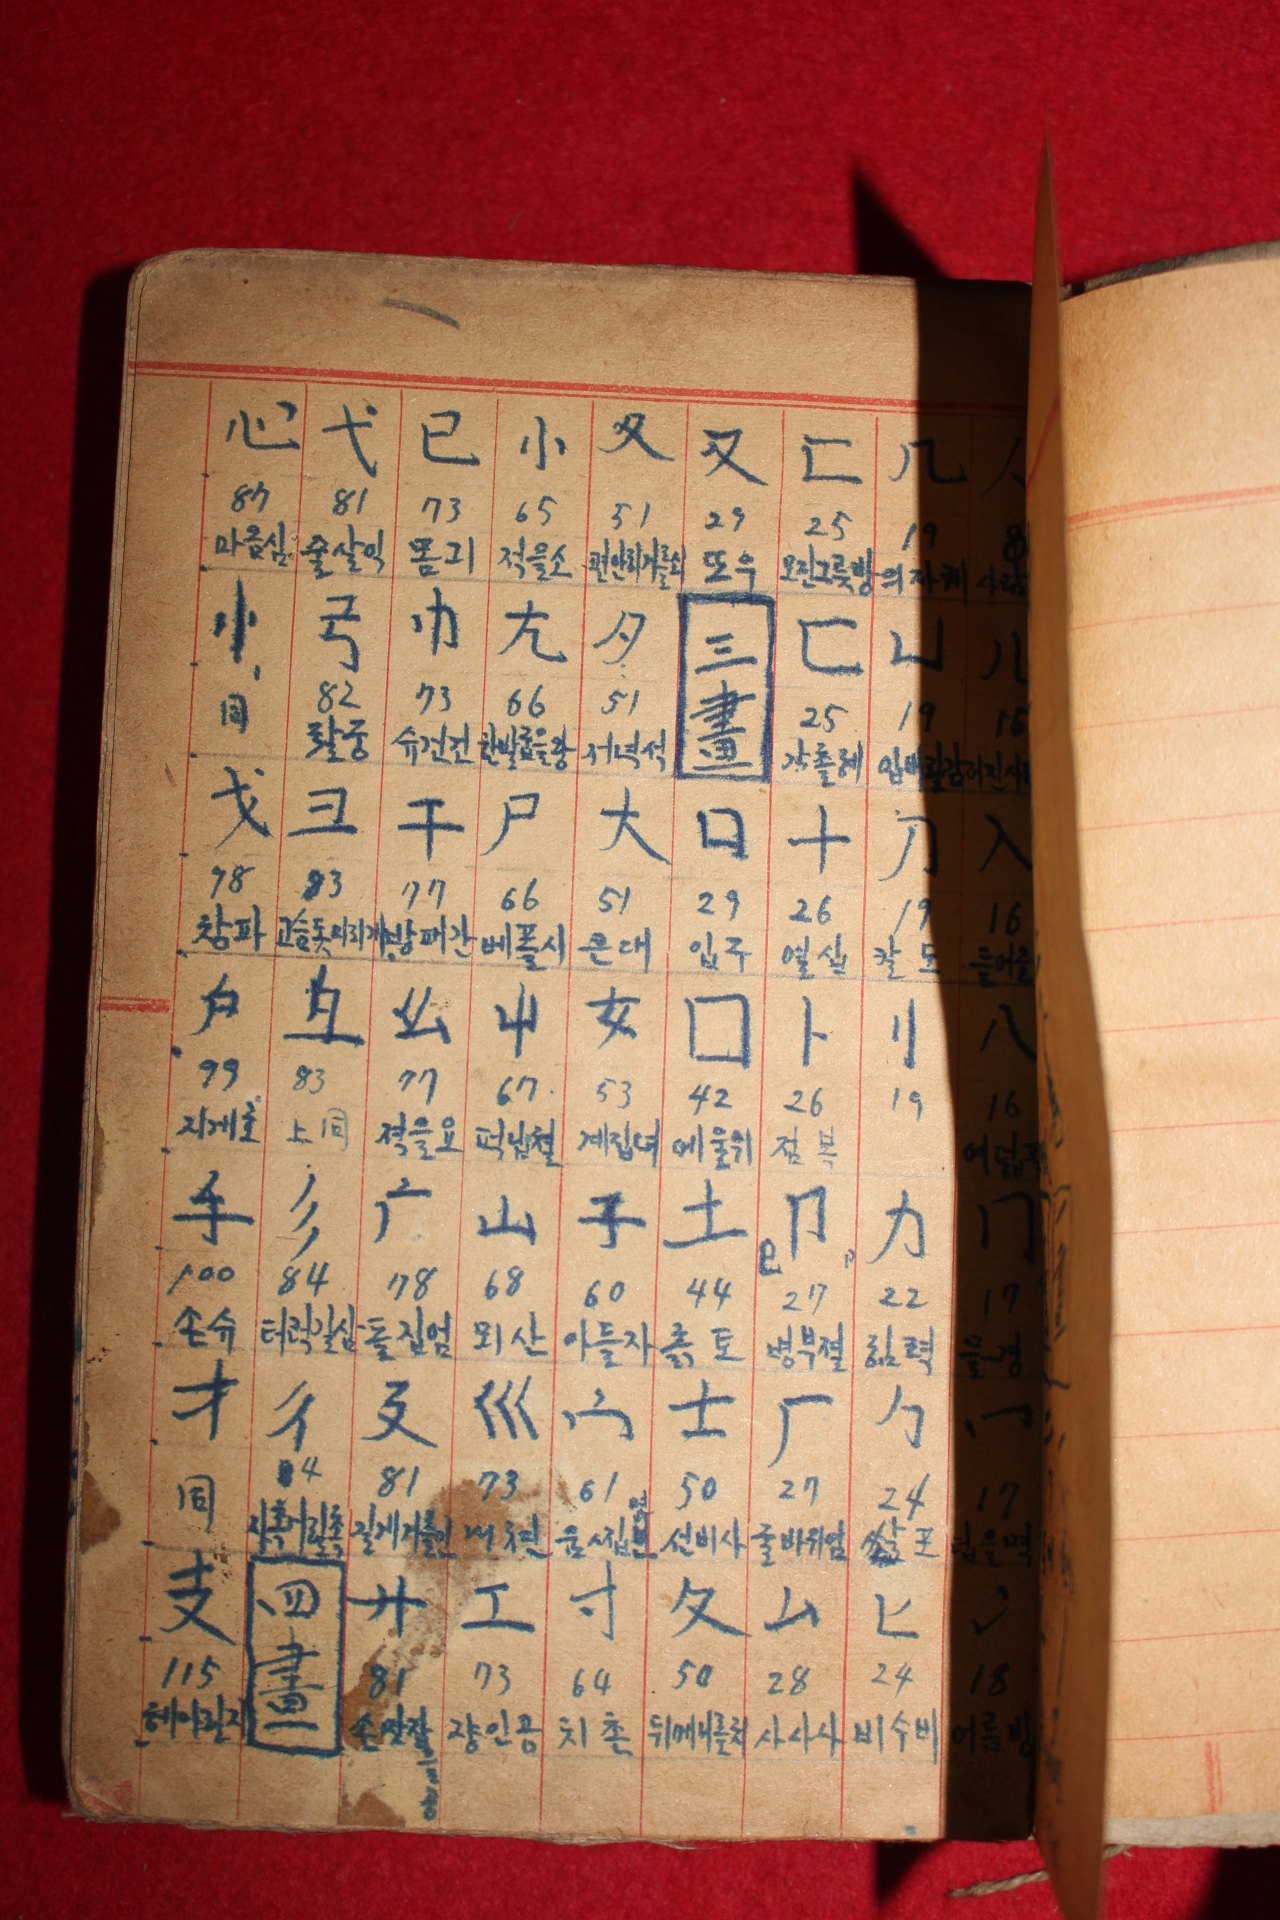 8
儿
16
入
16
八
16
冂
17
冖
17
덥을멱
冫
18
어름빙
几
19
의자궤
凵
19
刀
19
칼 도
刂
19
力
22
힘 력
勹
24
쌀 포
匕
24
비수비
匚
25
모진그릇방
匸
25
감출혜
十
26
열 십
卜
26
점 복
卩
27
병부절
厂
27
굴바위엄
厶
28
사사사
又
29
또우
三畫
口
29
입 구
囗
42
에울위
土
44
흙 토
士
50
선비사
夂
50
夊
51
夕
51
저녁석
大
51
큰 대
女
53
계집녀
子
60
아들자
宀
61
움집면
寸
64
치 촌
小
65
적을소
尢
66
尸
66
베풀시
屮
67
山
68
뫼 산
巛
73
내 천
工
73
쟝인공
己
73
몸 긔
巾
73
슈건건
干
77
방패간
幺
77
젹을요
广
78
돌집엄
廴
81
길게거를인
廾
81
손맛잡을공
弋
81
줄살익
弓
82
활 궁
彐
83
彑
83
上同
彡
84
터럭길삼
彳
四畫
心
87
마음심
⺗
同
戈
98
창과
戶
99
지게호
手
100
손슈
才
同
支
115